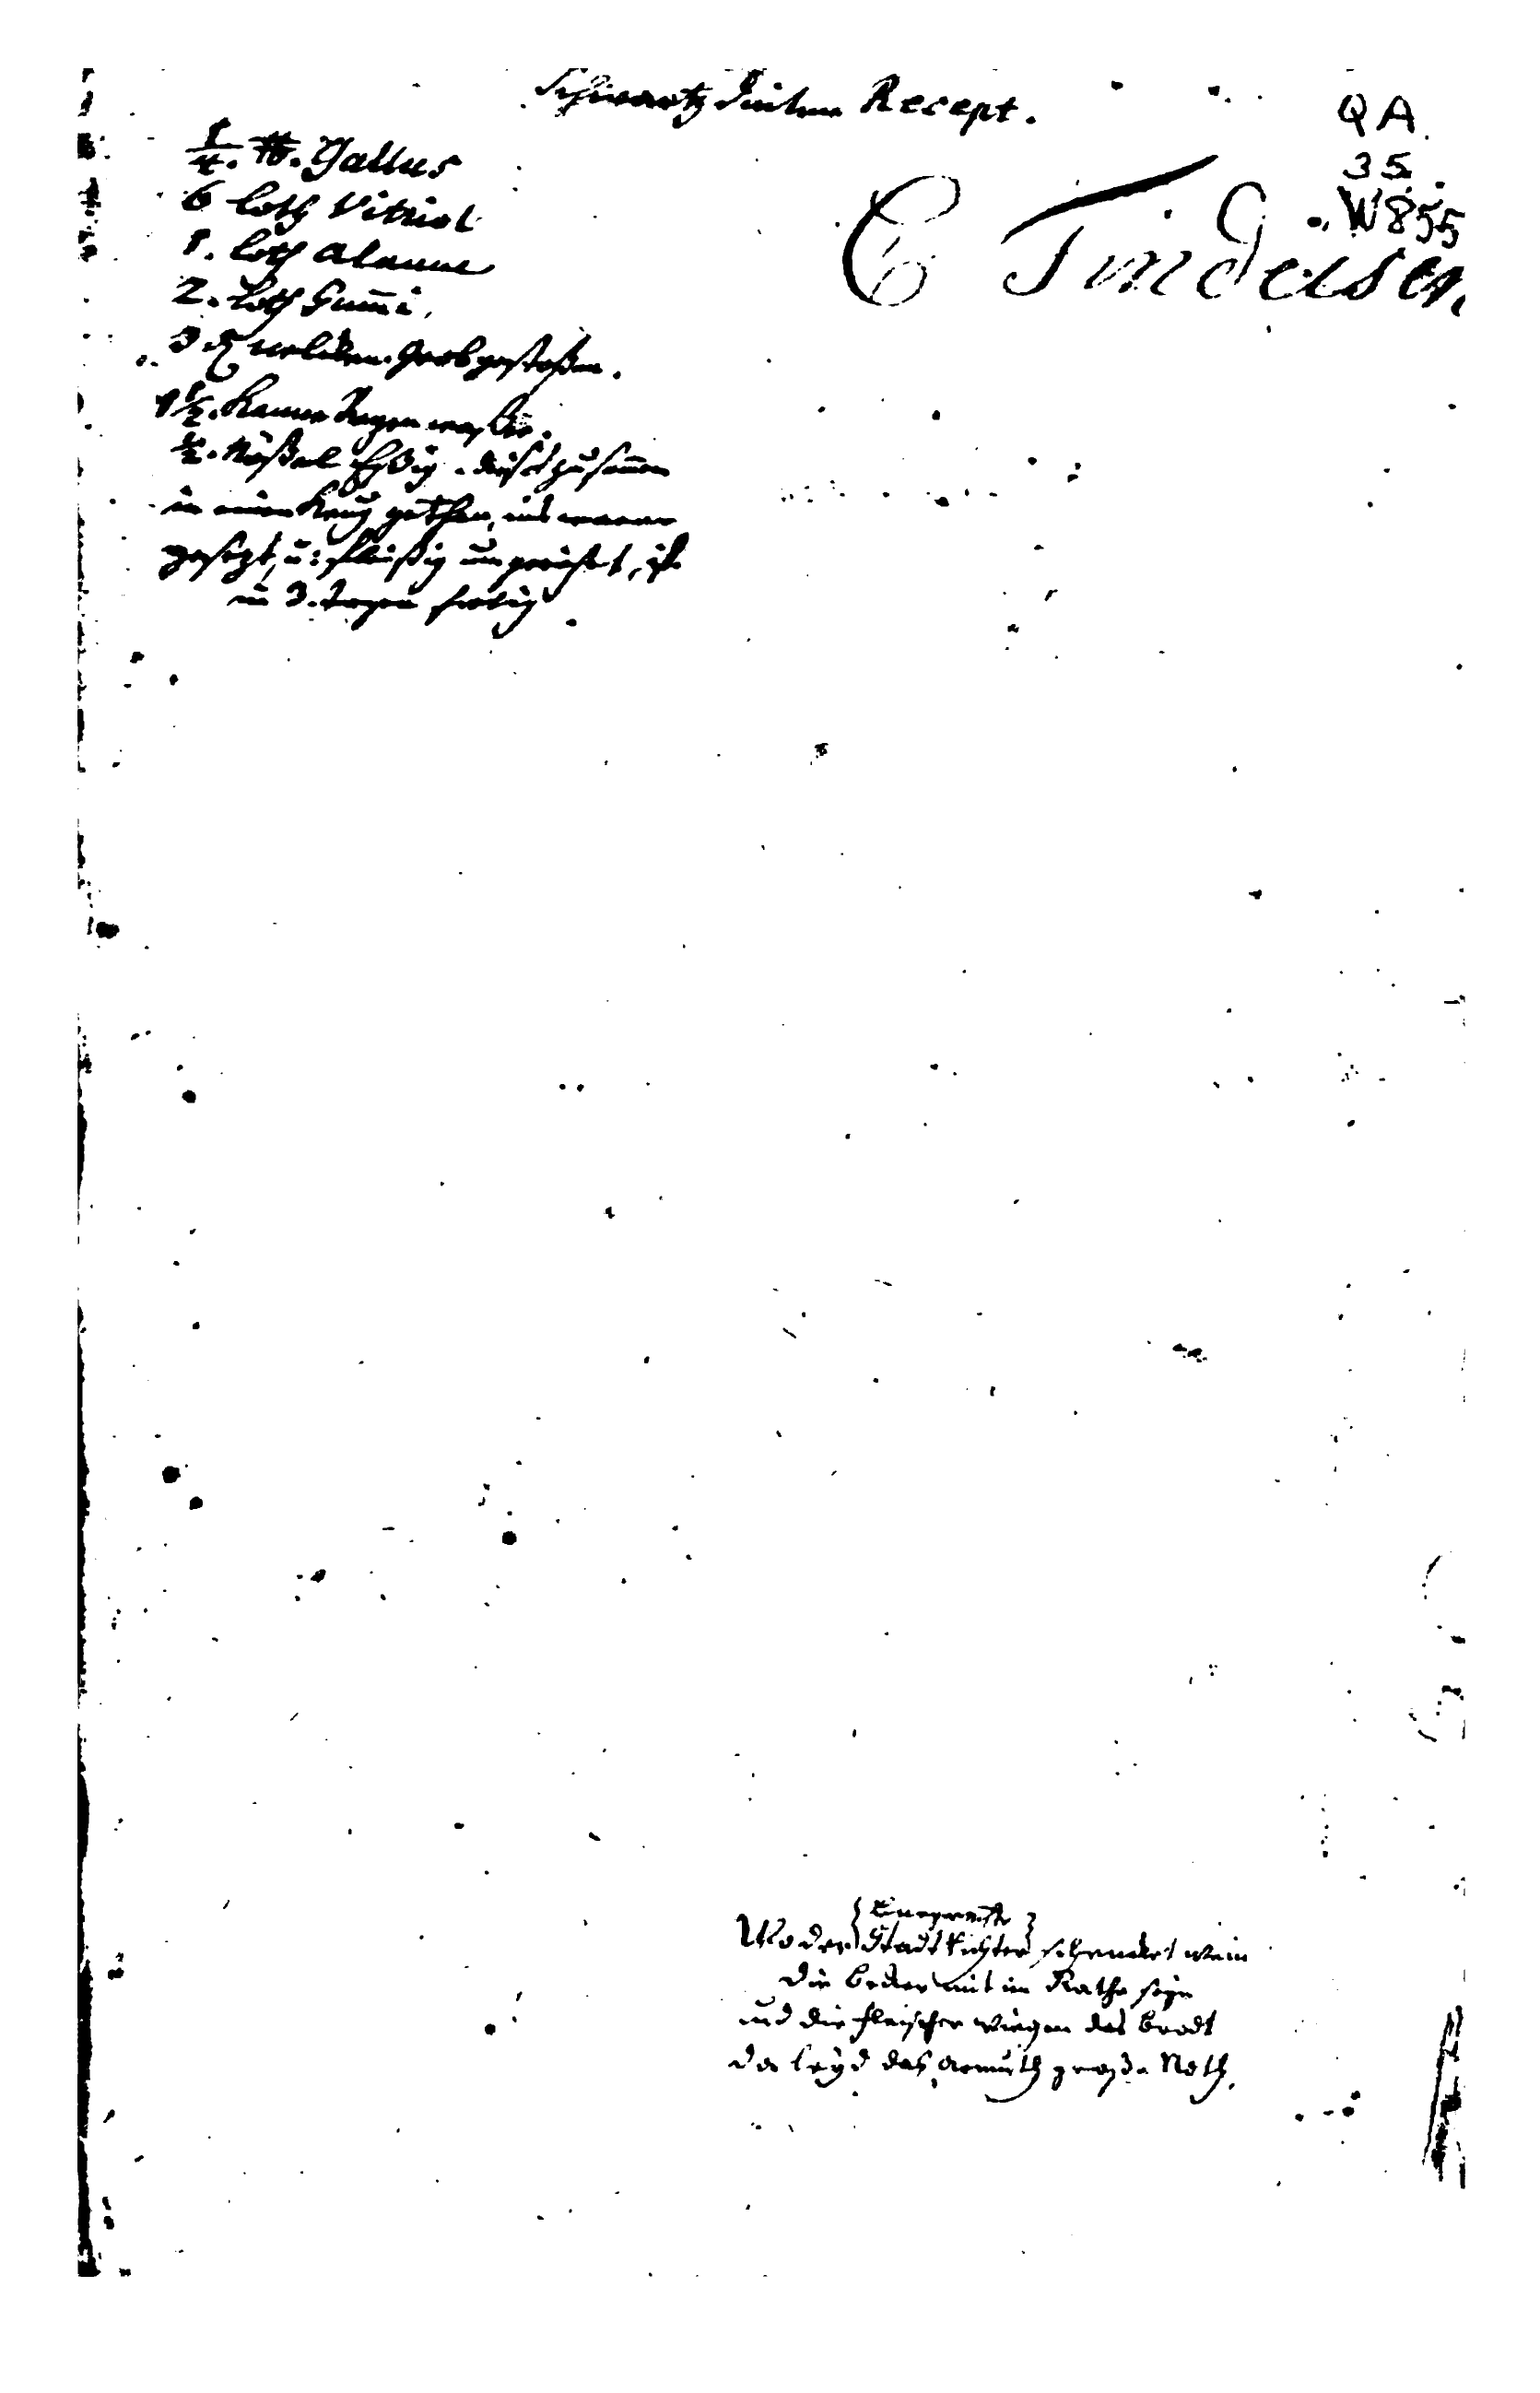 Schwartz Dinten Recept.
QA
35
W855
C Tindeisen
1/4. ℔. Gallus
6 loth Vitriol
1. loth Alaune
2. loth Gum̅i.
3 nelcken. grob gestoßen.
1 1/2. Kanne Regen waßer.
1/2. Nößel Eßig. dieses zusam̅en
in einen Krug gethan, ins warme
gesezt, u: fleißig umgerührt, ist
in 3. tagen fertig.
Wo der Stadt Richter schencket wein
Die becker mit im Rathe seyn
und die fleischer wiegen das brodt
da leyd das armuth große Noth.